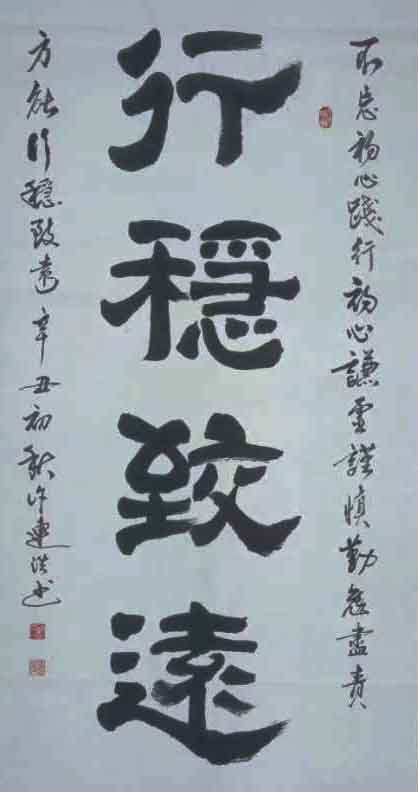 不忘初心踐行初心謙虛謹慎勤勉盡責
行穩致遠
方能行穩致遠辛丑初秋許連洪书